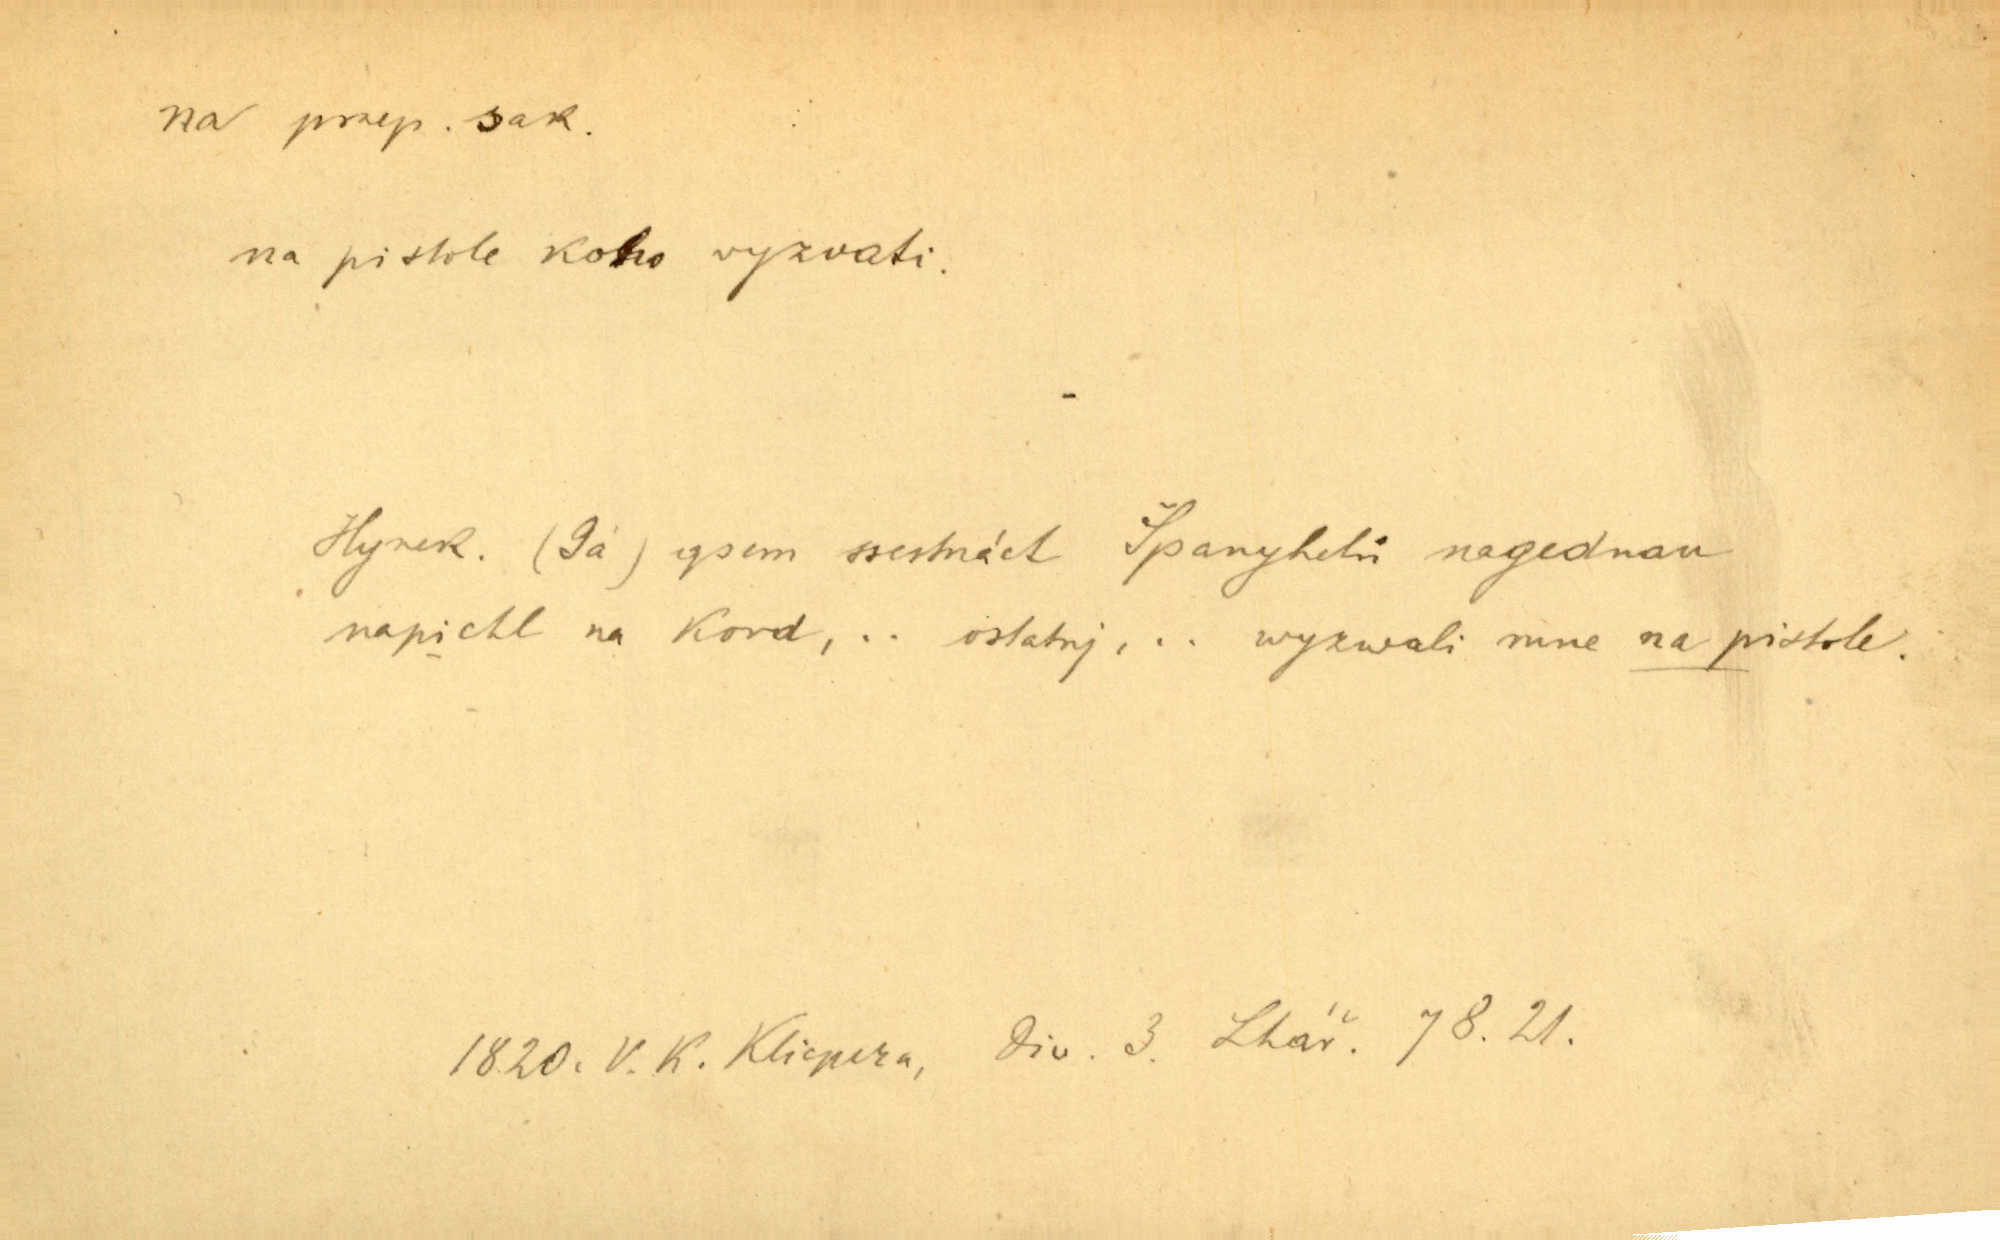 na praep. sak.
na pistole koho vyzvati.
Hynek. (Já) gsem ssestnáct Španyhelů nagednau
napichl na kord, .. ostatnj, .. wyzwali mne na pistole.
1820. V. K. Klicpera, Div. 3. Lhář. 78. 21.